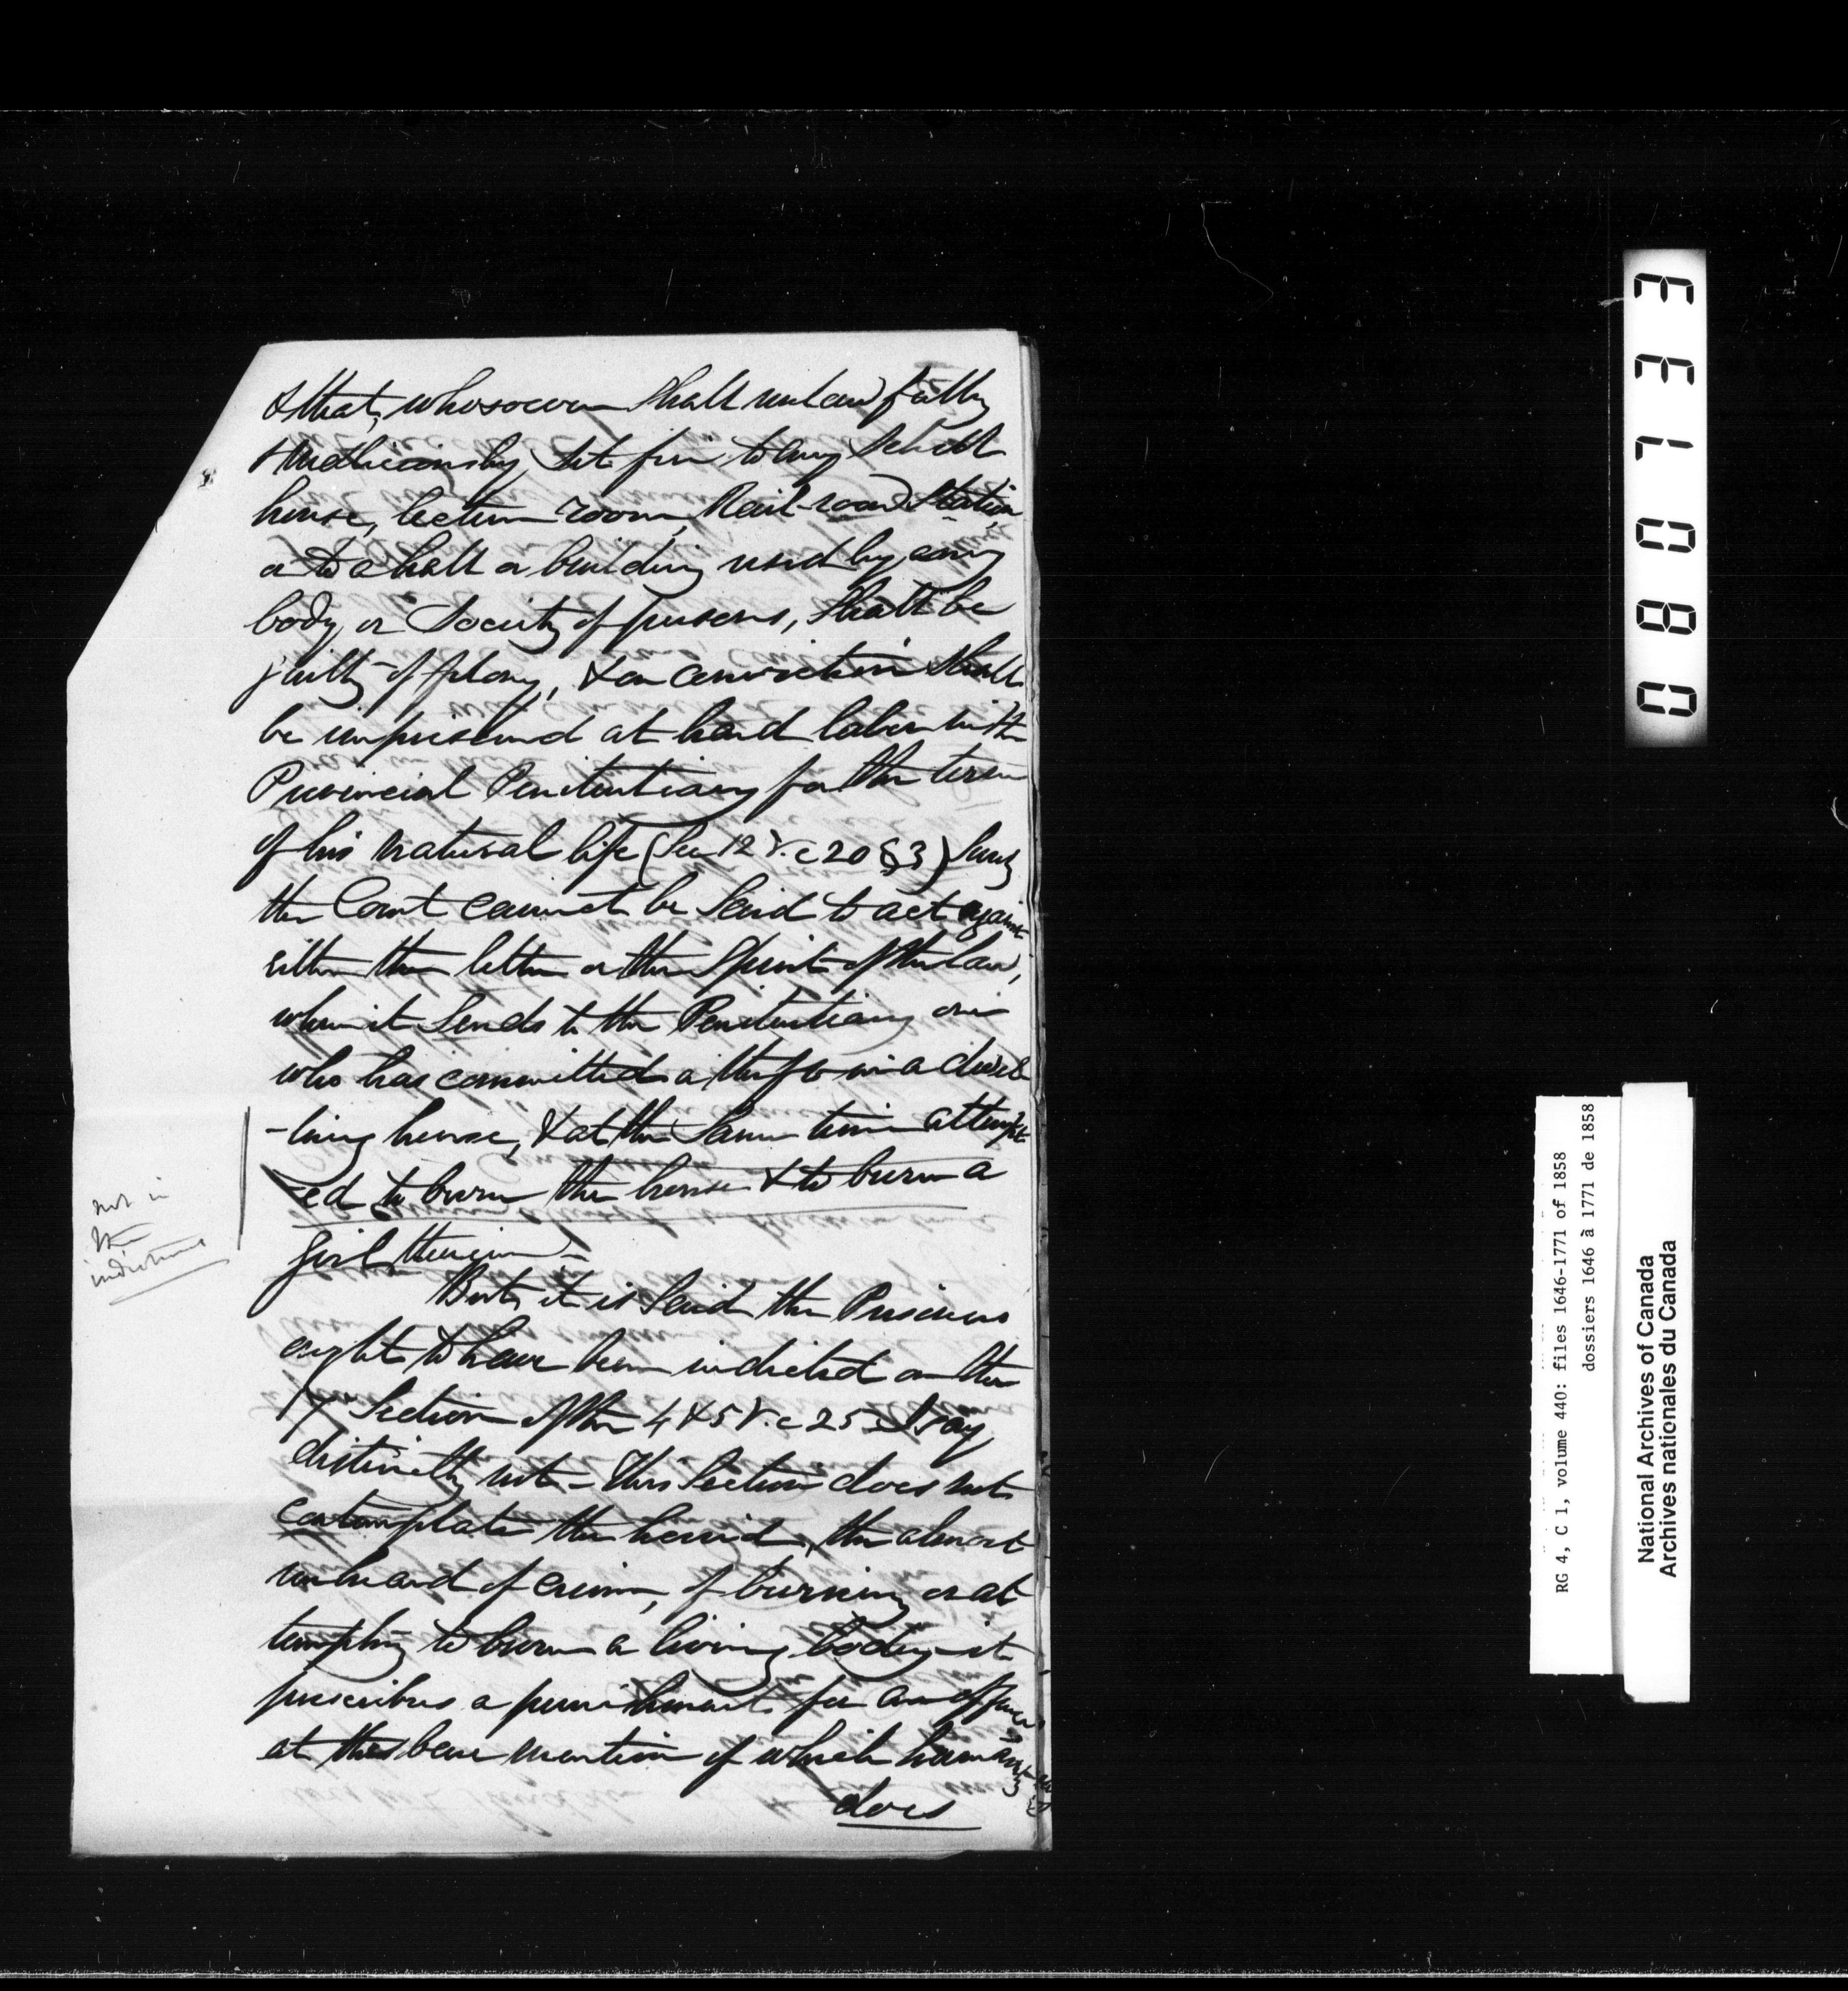 & that, whosoever shall unlawfully
& maliciously set fire to any School
house, lecture room, Rail-road Station
or to a hall or building used by any
body, or Society of persons, shall be
guilty of felony, & on conviction shall
be imprisoned at hard labor in the
Provincial Penitentiary for the term
of his natural life (See 12 V. c 20 § 3) Surely
the Court cannot be said to act against
either the letter or the Spirit of the law,
when it sends to the Penitentiary one
who has committed a theft in a dwel-
-ling house, & at the same time attempt
-ed to burn the house & to burn a
girl therein -
But, it is said the Prisoners
ought to have been indicted on the
17 Section of the 4 & 5 V. c 25. I say
distinctly not - This Section does not
contemplate the horrid, the almost
unheard of crime, of burning or at
tempting to burn a living body - it
prescribes a punishment for an offence
at the bare mention of which humanity
does
not in
the
indictment
0 8 0 7 3 3
RG 4, C 1, volume 440: files 1646-1771 of 1858
dossiers 1646 à 1771 de 1858
National Archives of Canada
Archives nationales du Canada